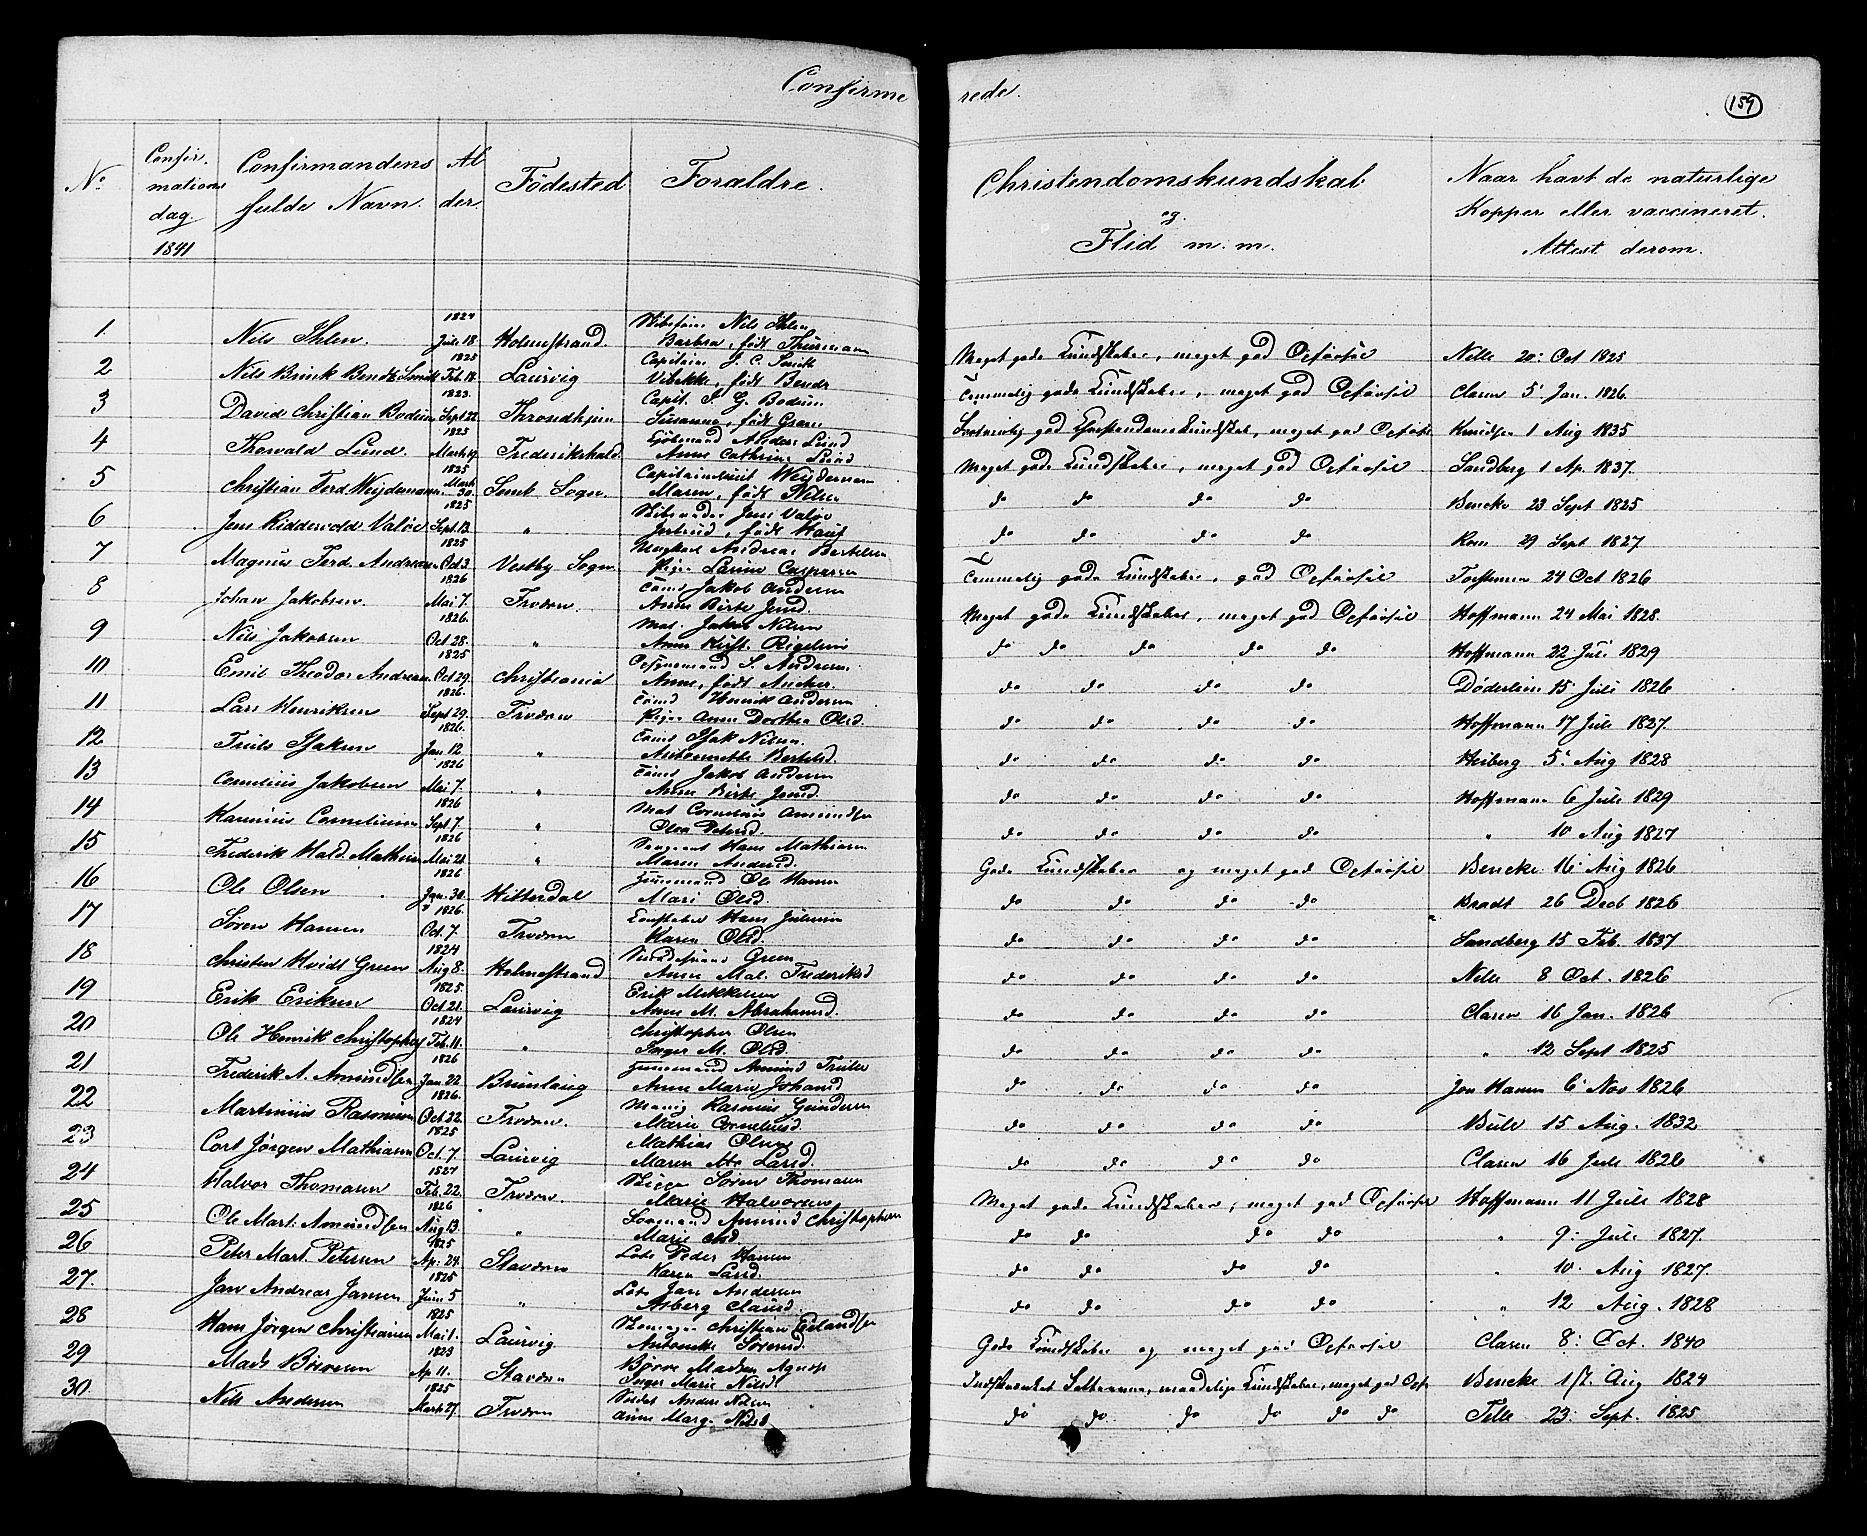 Confirmerede.
159
No
Confirmations dag. 1841
Confirmandens fulde Navn.
Alder.
Födested
Forældre.
Christendomskundskab og Flid m. m.
Naar havt de naturlige Kopper eller vaccineret. Attest derom.
1 Nils Ihlen. 1824 Juli 18. Holmestrand. Nils Ihlen Barbra, født Thurmann Meget gode Kundskaber, meget god Opførsel Nille 20: Oct 1825
2 Nils Brink Bendz Smith 1825 Feb. 18. Laurvig Capitain J. C. Smith Vibekke, født Bendz Temmelig gode Kundskaber, meget god Opførsel Claren 5 Jan. 1826.
3 David Christian Bodum 1823. Sept 22. Throndhjem Capit. J. G. Bodum Susanna, født Gram god Christendoms Kundskab, meget god Opførsel Knudsen 1 Aug 1835
4 Thorvald Lund. 1825 Mart. 19. Frederikshald. Anders Lund Anne Cathrine Lund Meget gode Kundskaber, meget god Opførsel Sandberg 1 Ap. 1837.
5 Christian Ferd. Weydemann 1825 Mart. 30. Semb Sogn. Weydemann Maren, født Nilsen do do do do Bencke 23 Sept 1825
6 Jens Ridderwold Valøe 1825 Sept. 13. " Jens Valøe født do do do do Rom 29 Sept 1827
7 Magnus Ferd. Andreasen 1825 Oct 3. Vestby Sogn. Andreas Bertelsen Pigen Larine Caspersen Temmelig gode Kundskaber, god Opførsel 24 Oct 1826
8 Johan Jakobsen. 1826 Mai 7. Fredvn. Tømd Jakob Andersen Anne Birte Jensd. Meget gode Kundskaber, meget god Opførsel Hoffmann 24 Mai 1828.
9 Nils Jakobsen 1826. Oct 28. " Mat. Jakob Nilsen Anne Kirst. do do do do do Hoffmann 22 Juli 1829
10 Emil Theodor Andresen. 1825 Oct 29. Christiania S. Andresen Anne, født Ancker. do do do do Döderlein 15 Juli 1826
11 Lars Henriksen 1826. Sept 29. Fredvn Tømd Henrik Andersen Pigen Anne Dorthea Olsd. do do do do Hoffmann 17 Juli 1827.
12 Truls Isaksen 1826. Jan 12 " Tømd Isak Nilsen. Bertelsd. do do do do Heiberg 5: Aug 1828
13 Cornelius Jakobsen 1826 Mai 7. " Tømd Jakob Andersen Anne Birte Jensd. do do do do Hoffmann 6 Juli 1829
14 Rasmus Corneliusen 1826 Sept 7. " Mat Cornelius Amundsen Olea Petersd. do do do do " 10 Aug 1827
15 Frederik Hald. Mathisen 1826 Mai 21. " Sergeant Hans Mathiasen Maren Andersd. Gode Kundskaber og meget god Opførsel Bencke 16 Aug 1826
16 Ole Olsen 1826 Jan. 30. Hitterdal Huusmand Ole Hansen Mari Olsd. do do do do Bradt 26 Decb 1826
17 Sören Hansen 1826. Oct. 7. Fredvn Hans Juliusen Karen Olsd. do do do do Sandberg 15 Feb. 1837
18 Christen Hvidt Green 1824 Aug 8. Holmestrand Green Anne Mal. Frederiksd do do do do Nille 8 Oct. 1826
19 Erik Eriksen 1825. Oct 21. Laurvig Erik Mikkelsen Anne M. Abrahamsd. do do do do Claren 16 Jan. 1826
20 Ole Henrik Christophersen 1824 Feb. 11. " Christopher Olsen Inger M. Olsd. do do do do " 12 Sept 1825
21 Frederik A. Amundsen 1826 Jan 22 Brunlaug Huusmand Amund Trulsen Anne Marie Johansd do do do do Jon Hansen 6 Nov 1826
22 Martinius Rasmusen 1826. Oct. 22. Fredvn. Rasmus Gundersen Marie Corneliusd. do do do do Bull 15 Aug. 1832
23 Cort Jörgen Mathiasen 1825 Oct. 7. Laurvig Mathias Olsen Maren Mta Larsd. do do do do Claren 16 Juli 1826
24 Halvor Thomasen 1827 Feb. 22. Fredvn. Sören Thomasen Marie Halvorsen Meget gode Kundskaber, meget god Opførsel Hoffmann 11 Juli 1828
25 Ole Mart. Amundsen 1826 Aug 13. " Amund Christophersen Marie do do do do " 9: Juli 1827.
26 Peter Mart. Petersen 1825 Ap. 24. Stavern Lods Peder Hansen Karen Larsd. do do do do " 10. Aug 1827.
27. Jan Andreas Jansen 1825 Juni 5 " Lods Jan Andersen Asberg Clausd. do do do do " 12 Aug. 1828
28 Hans Jörgen Christiansen 1825 Mai 1. Laurvig Christian Erlandsen Antonette Sörensd. Gode Kundskaber og meget god Opførsel Claren 8: Oct. 1840
29 Mads Börresen 1823 Ap. 11. Stavern Börre Madsen Inger Marie Nilsd. maadelige Kundskaber, meget god Opf. Bencke 1/7. Aug 1824
30 Nils Andersen 1825 Mart. 27. Fredvn Anders Nilsen Anne Marg. Nilsd. do do do do do do Tille 23: Sept. 1825